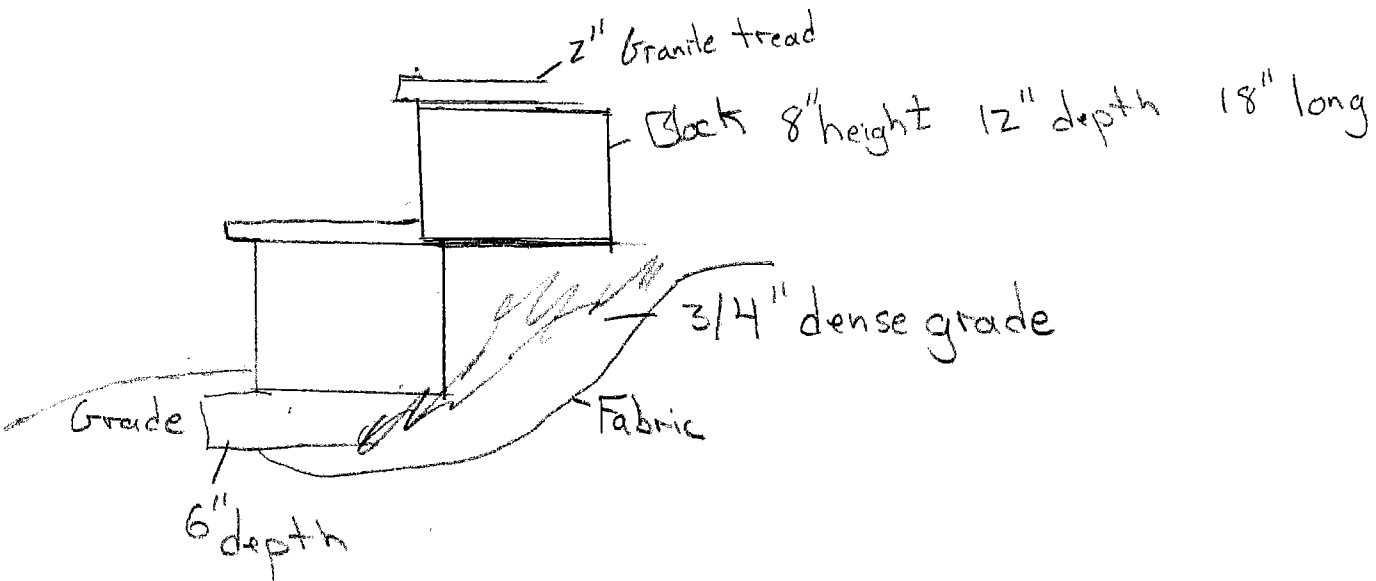 2" Granite tread
Block 8" height 12" depth 18" long
3/4" dense grade
Grade
Fabric
6" depth